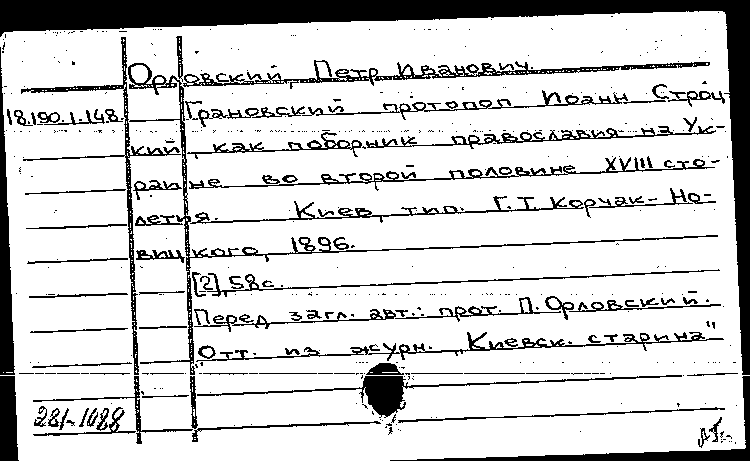 Орловский, Петр Иванович.
18.190.1.148. Грановский протопоп Иоанн Строц-
кий, как поборник православия на Ук-
раине во второй половине XVIII сто-
летия. Киев, тип. Г.Т. Корчак-Но-
вицкого, 1896.
[2], 58с.
Перед загл. авт.: прот. П. Орловский.
Отт. из журн. „Киевск. старина"
281-1088